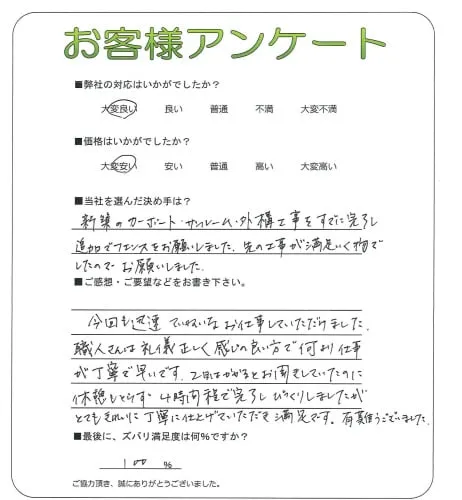 お客様アンケート
■弊社の対応はいかがでしたか？
大変良い 良い 普通 不満 大変不満
■価格はいかがでしたか？
大変安い 安い 普通 高い 大変高い
■当社を選んだ決め手は？
新築のカーポート・サンルーム・外構工事をすでに完了し
追加でフェンスをお願いしました。先の工事が満足いく物で
したのでお願いしました。
■ご感想・ご要望などをお書き下さい。
今回も迅速ていねいなお仕事していただけました。
職人さんは礼儀正しく感じの良い方で何より仕事
が丁寧で早いです。2日はかかるとお聞きしていたのに
休憩もとらず4時間程で完了しびっくりしましたが
とてもきれいに丁寧に仕上げていただき満足です。有難うございました。
■最後に、ズバリ満足度は何％ですか？
100 %
ご協力頂き、誠にありがとうございました。